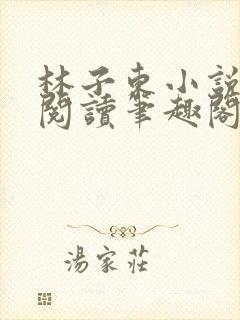 林子東小說
閱讀筆趣閣
湯家莊